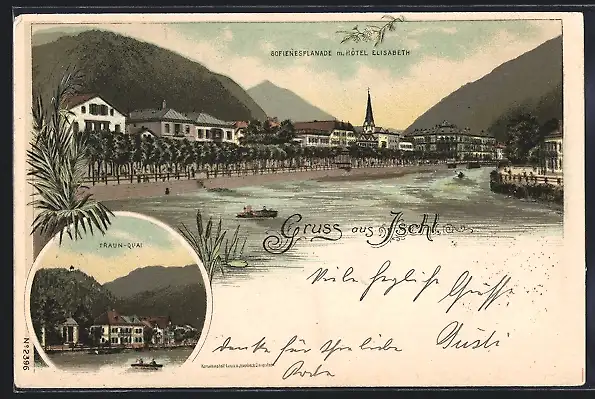 SOFIENESPLANADE m. HÔTEL ELISABETH
Gruss aus Ischl.
TRAUN-QUAI
Viele herzliche Grüsse
danke für Ihre liebe
Karte
No 2396